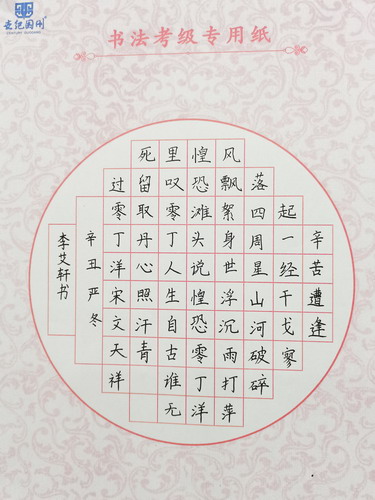 书法考级专用纸
辛苦遭逢
起一经干戈寥
落四周星山河破碎
风飘絮身世浮沉雨打萍
惶恐滩头说惶恐零丁洋
里叹零丁人生自古谁无
死留取丹心照汗青
过零丁洋宋文天祥
辛丑严冬
李艾轩书